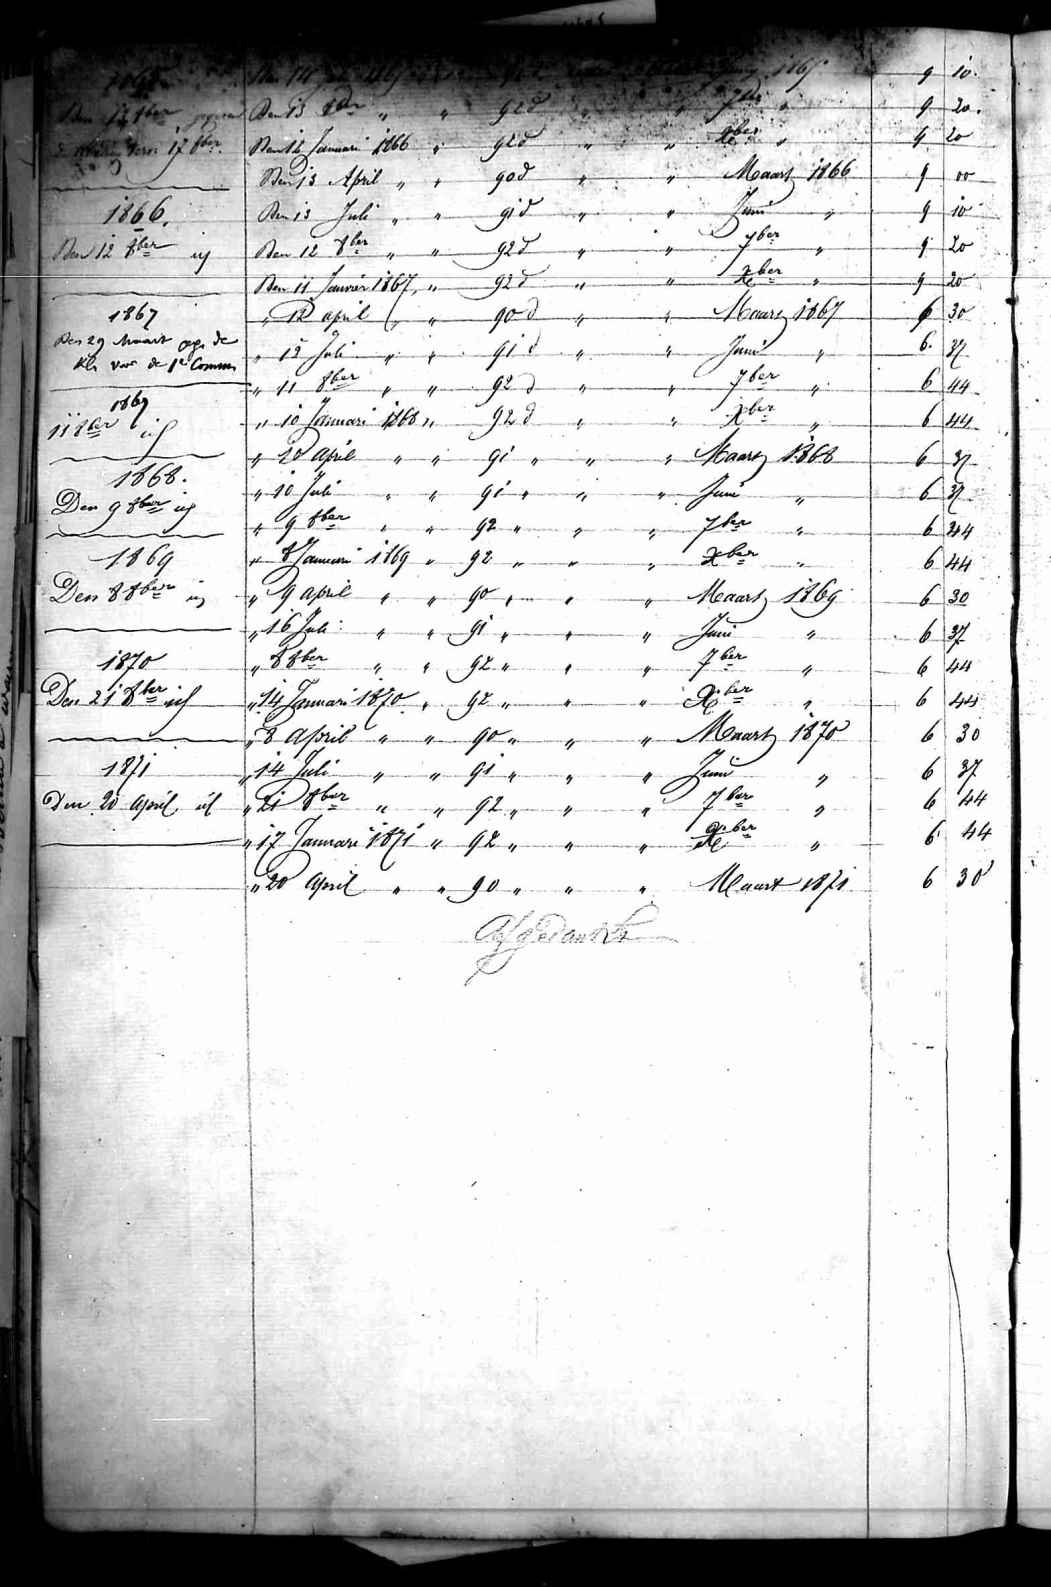 1865
Den 14 Juli 1865 1865 9 10.
Den 17 8ber Den 13 8ber " " 92d " " 7ber " 9 20.
17 8ber Den 12 Januari 1866 " 92d " " Xber " 9 20
Den 13 April " " 90d " " Maart 1866 9 00
1866. Den 13 Juli " " 91d " " Juni " 9 10
Den 12 8ber Den 12 8ber " " 92d " " 7ber " 9 20
Den 11 Janvier 1867 " 92d " " Xber " 9 20
1867 " 12 april " " 90d " " Maart 1867 6 30
Den 29 Maart de
voor de 1e Comm " 12 Juli " " 91d " " Juni " 6. 37
" 11 8ber " " 92d " " 7ber " 6 44
1867
11 8ber " 10 Januari 1868 " 92d " " Xber " 6 44
" 10 April " " 91 " " Maart 1868 6 37
1868. " 10 Juli " " 91 " " " Juni " 6 37
Den 9 8ber " 9 8ber " " 92 " " " 7ber " 6 44
1869 " 8 Januari 1869 " 92 " " " Xber " 6 44
Den 8 8ber " 9 april " " 90 " " " Maart 1869 6 30
" 16 Juli " " 91 " " " Juni " 6 37
1870 " 8 8ber " " 92 " " " 7ber " 6 44
Den 21 8ber " 14 Januari 1870 " 92 " " " Xber " 6 44
" 8 April " " 90 " " " Maart 1870 6 30
1871 " 14 Juli " " 91 " " " Juni " 6 37
Den 20 April " 21 8ber " " 92 " " " 7ber " 6 44
" 17 Januari 1871 " 92 " " " Xber " 6 44
" 20 April " " 90 " " " Maart 1871 6 30